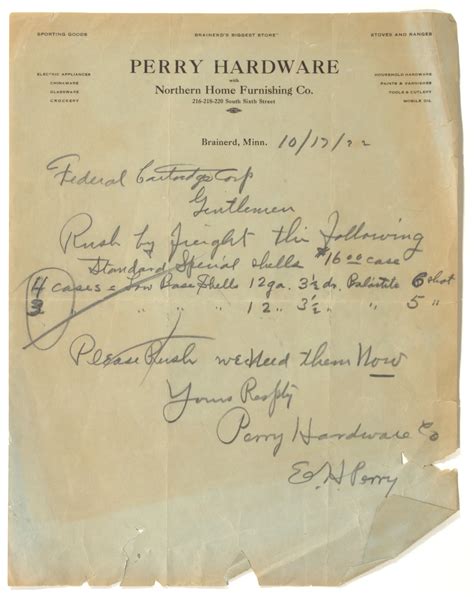 SPORTING GOODS BRAINERD'S BIGGEST STORE STOVES AND RANGES
ELECTRIC APPLIANCES
CHINAWARE
GLASSWARE
CROCKERY
PERRY HARDWARE
with
Northern Home Furnishing Co.
216-218-220 South Sixth Street
HOUSEHOLD HARDWARE
PAINTS & VARNISHES
TOOLS & CUTLERY
MOBILE OIL
Brainerd, Minn. 10/17/22
Federal Cartridge Corp
Gentlemen
Rush by freight the following
Standard Special shells $16 00 case
4 cases Low Base Shells 12 ga. 3½ dr. 6 shot
3 " " " 12 " 3½ " " 5 "
Please Rush we need them Now
Yours Resptly
Perry Hardware Co
E.H. Perry